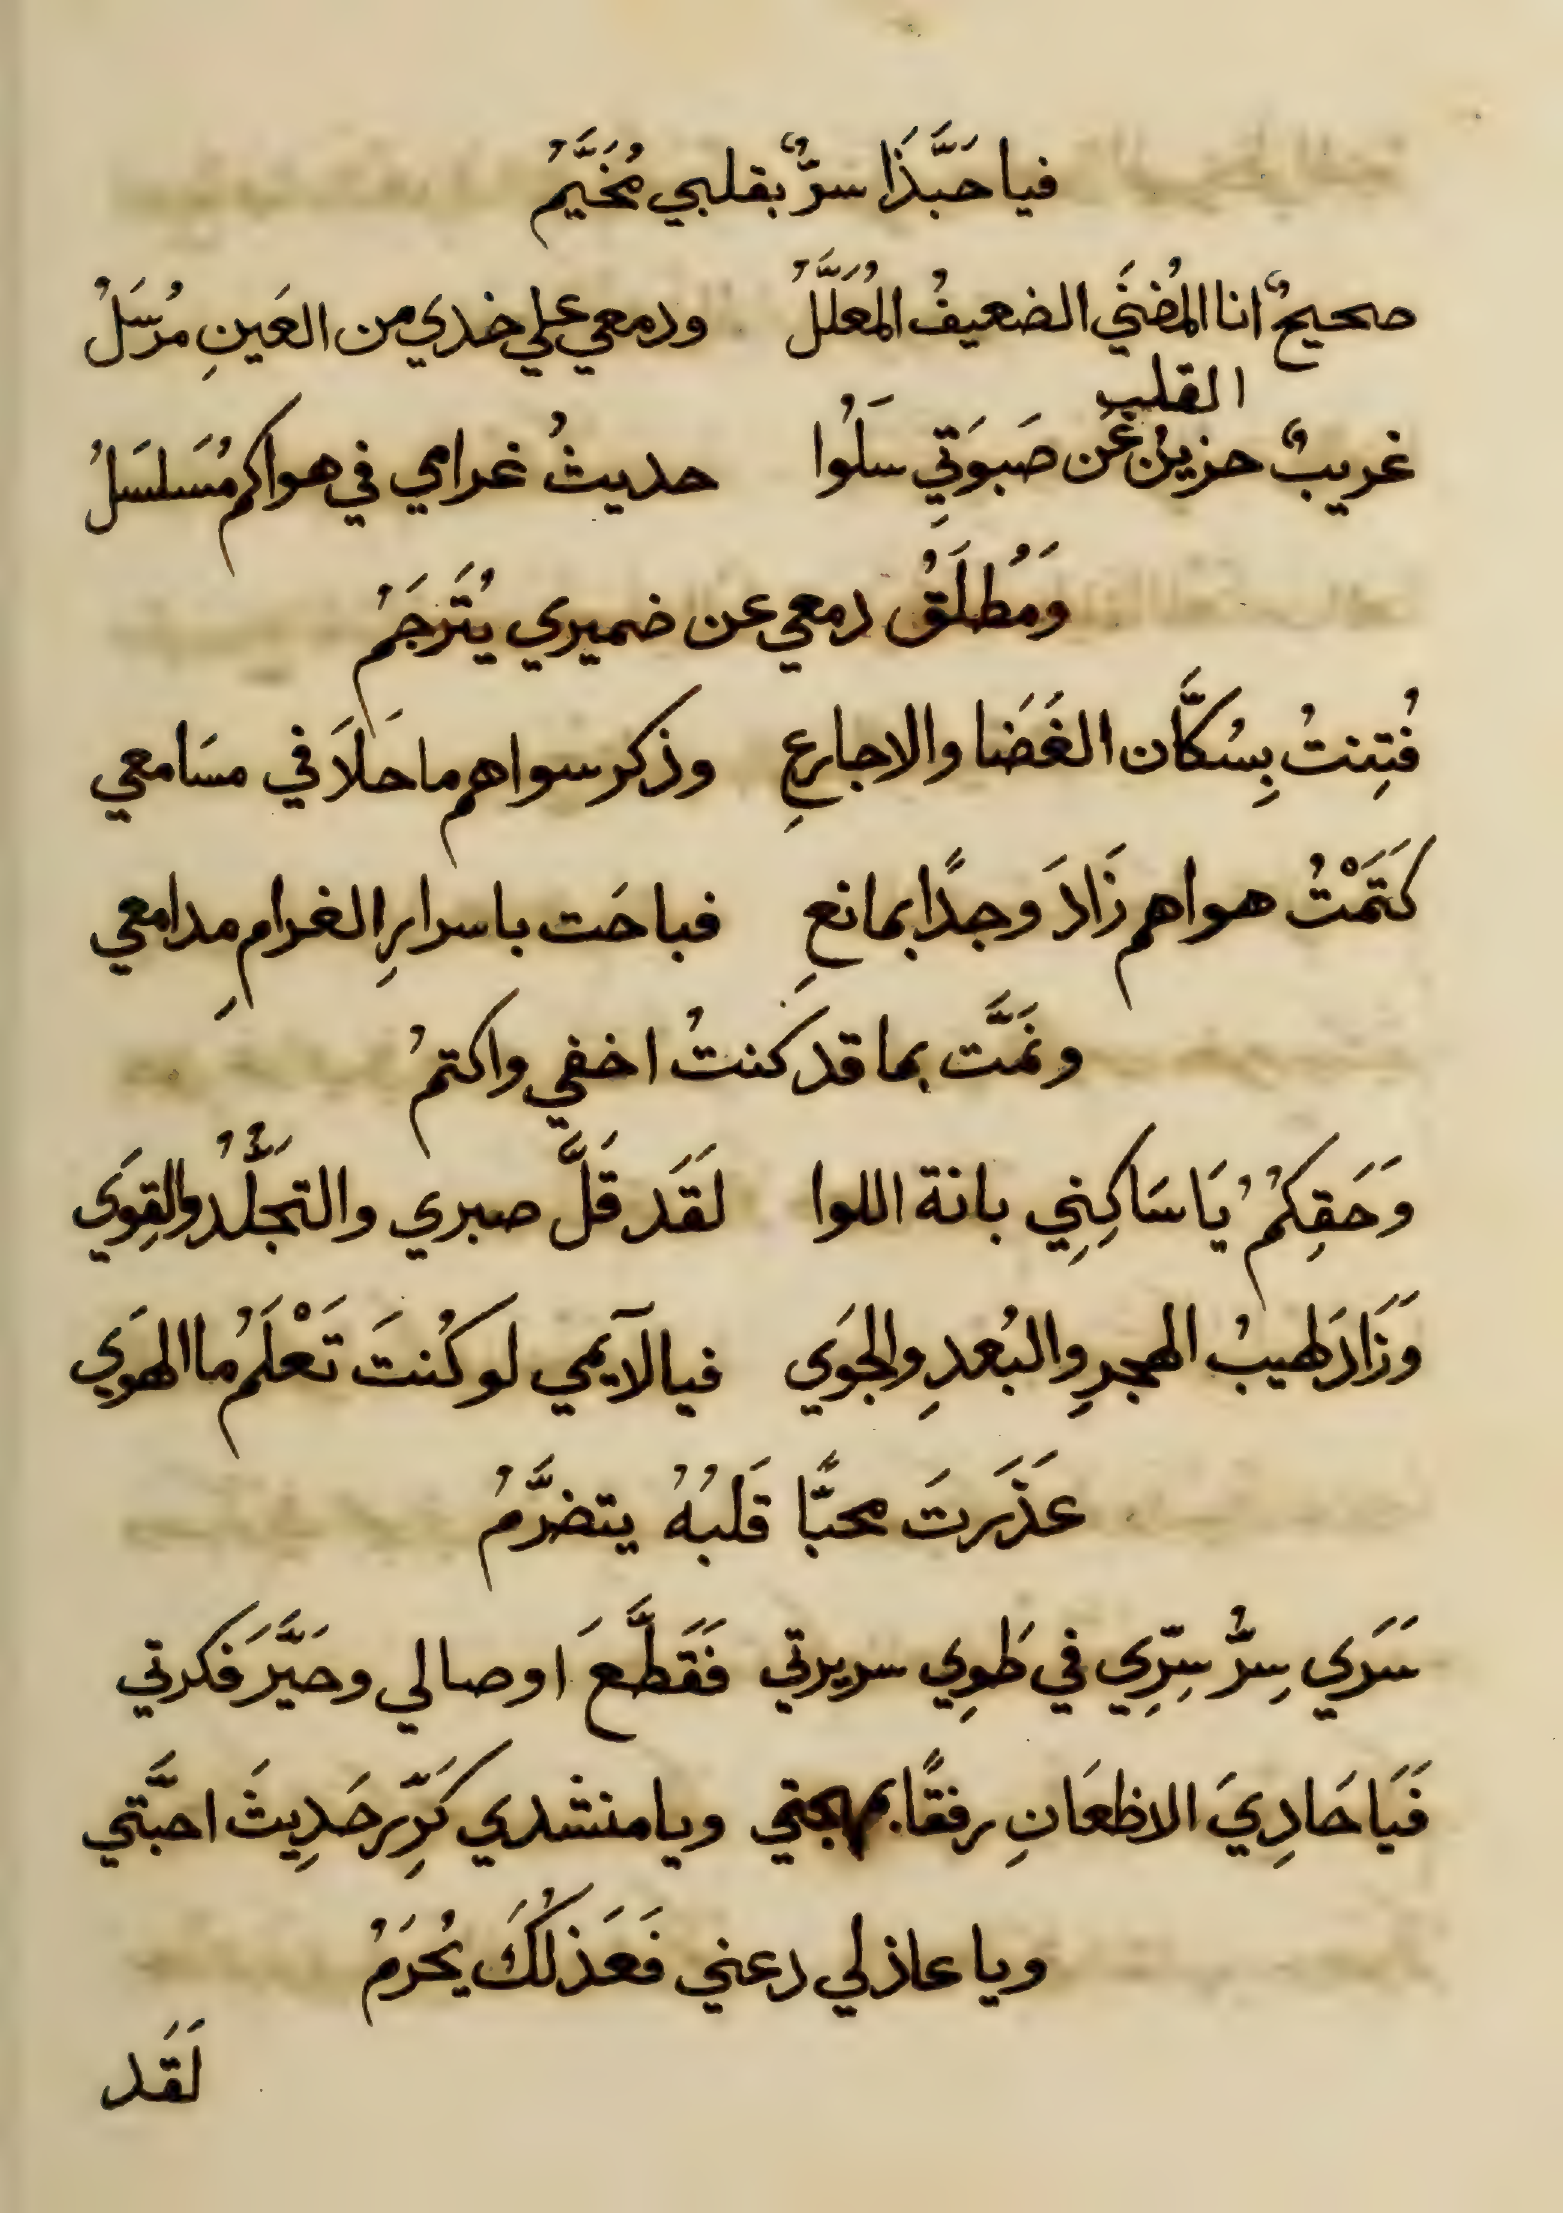 فيا حَبَّذَا سرٌّ بقلبي مُخَيَّمُ
صحيحٌ انا المُضنَي الضعيفُ المُعَلَّلُ ودمعي علي خدي من العَينِ مُرسَلُ
القلب
غريبٌ حزينُ عَن صَبوَتِي سَلُوا حديثُ غرامي في هواكم مُسَلسَلُ
وَمُطلَقُ دمعي عن ضميري يُتَرجَمُ
فُتِنتُ بِسُكَّان الغَضَا والاجارعِ وذكر سواهم ما حَلاَ في مسَامعي
كَتَمْتُ هواهم زَادَ وجدًا بمانعِ فباحَت باسرارِ الغرامِ مدامعي
ونَمَّت بما قد كنتُ اخفي واكتمُ
وَحَقِكُمُ يَا سَاكِنِي بانة اللوا لَقَد قَلَّ صبري والتجَلُّدُ والقِوَي
وَزَادَ لهيبُ الهجرِ والبُعدِ والجوَي فيا لآيمي لو كُنتَ تَعْلَمُ ما الهوَي
عَذَرتَ محبًّا قَلبُهُ يتضرَّمُ
سَرَي سِرُّ سِرِّي في طَوِي سريرتي فَقَطَّعَ اوصالي وحَيَّرَ فكرتي
فَيَا حَادِيَ الاظعَانِ رفقًا بمهجتي ويا منشدي كَرِّر حَدِيثَ احبَّتي
ويا عاذلي دعني فَعَذلُكَ يُحرَمُ
لَقَد